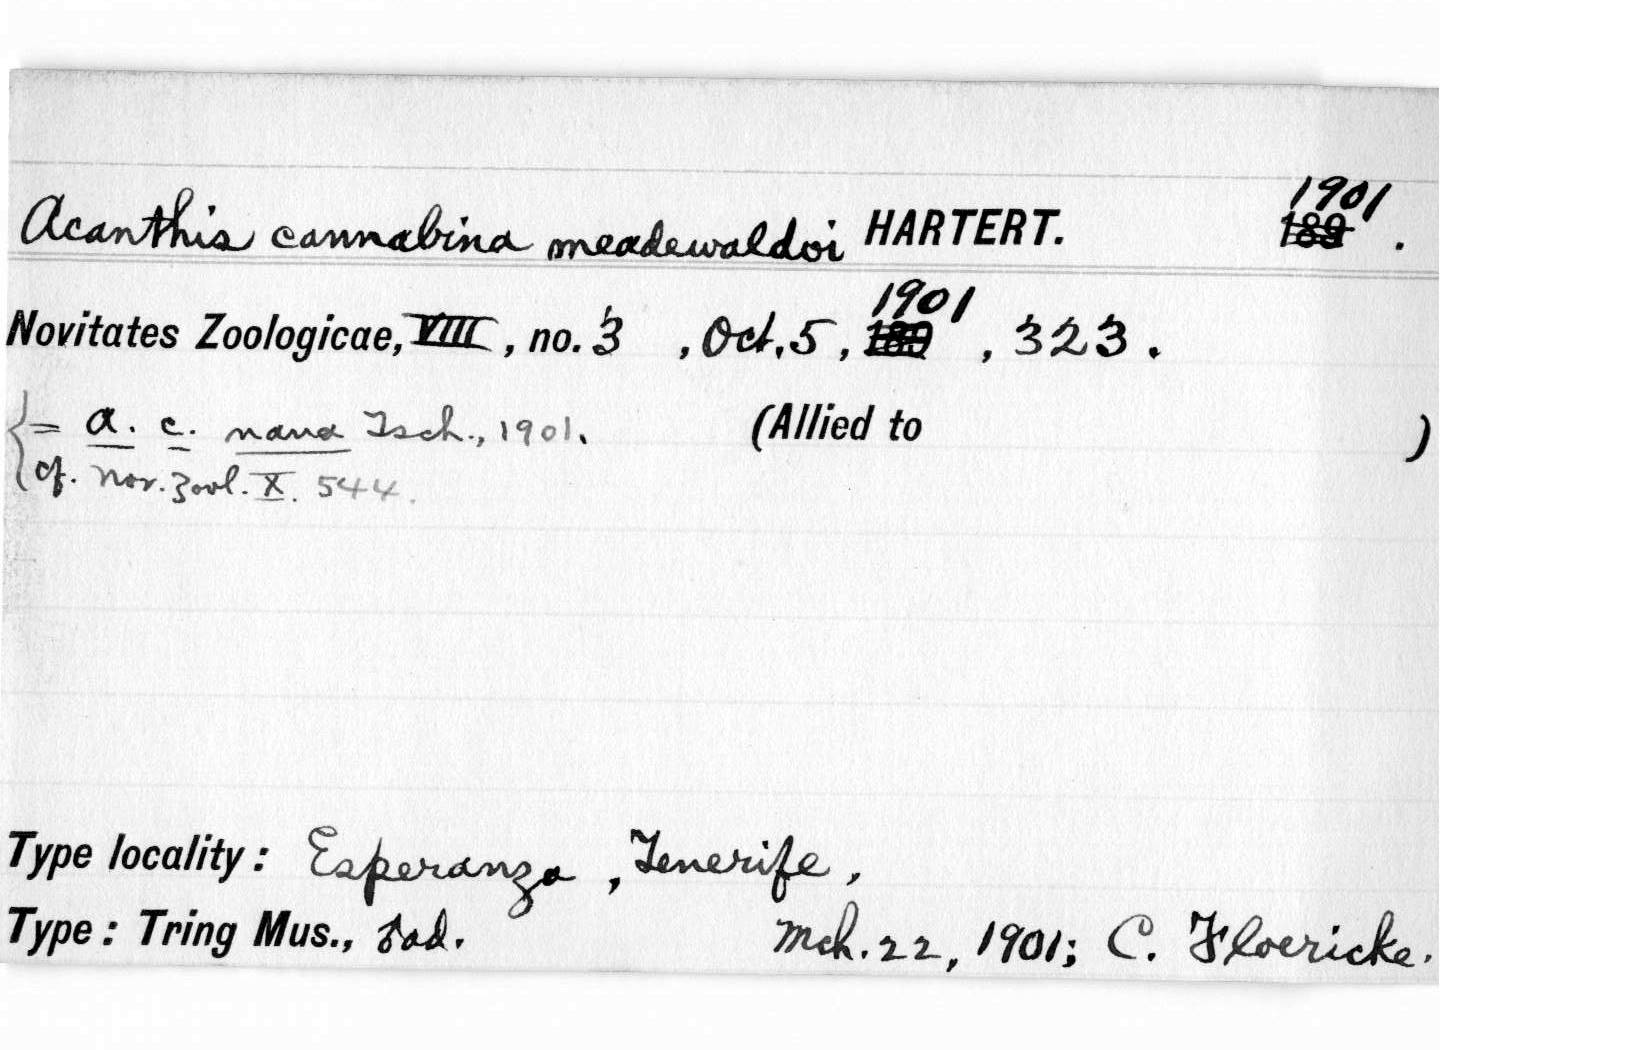 Acanthis cannabina meadewaldoi HARTERT. 1901 189 .
Novitates Zoologicae, VIII, no. 3 , Oct. 5, 1901 189 , 323.
{= A. c. nana Tsch., 1901. (Allied to )
cf. Nov. Zool. X. 544.
Type locality: Esperanza, Tenerife,
Type: Tring Mus., ♂ad. Mch. 22, 1901; C. Floericke.